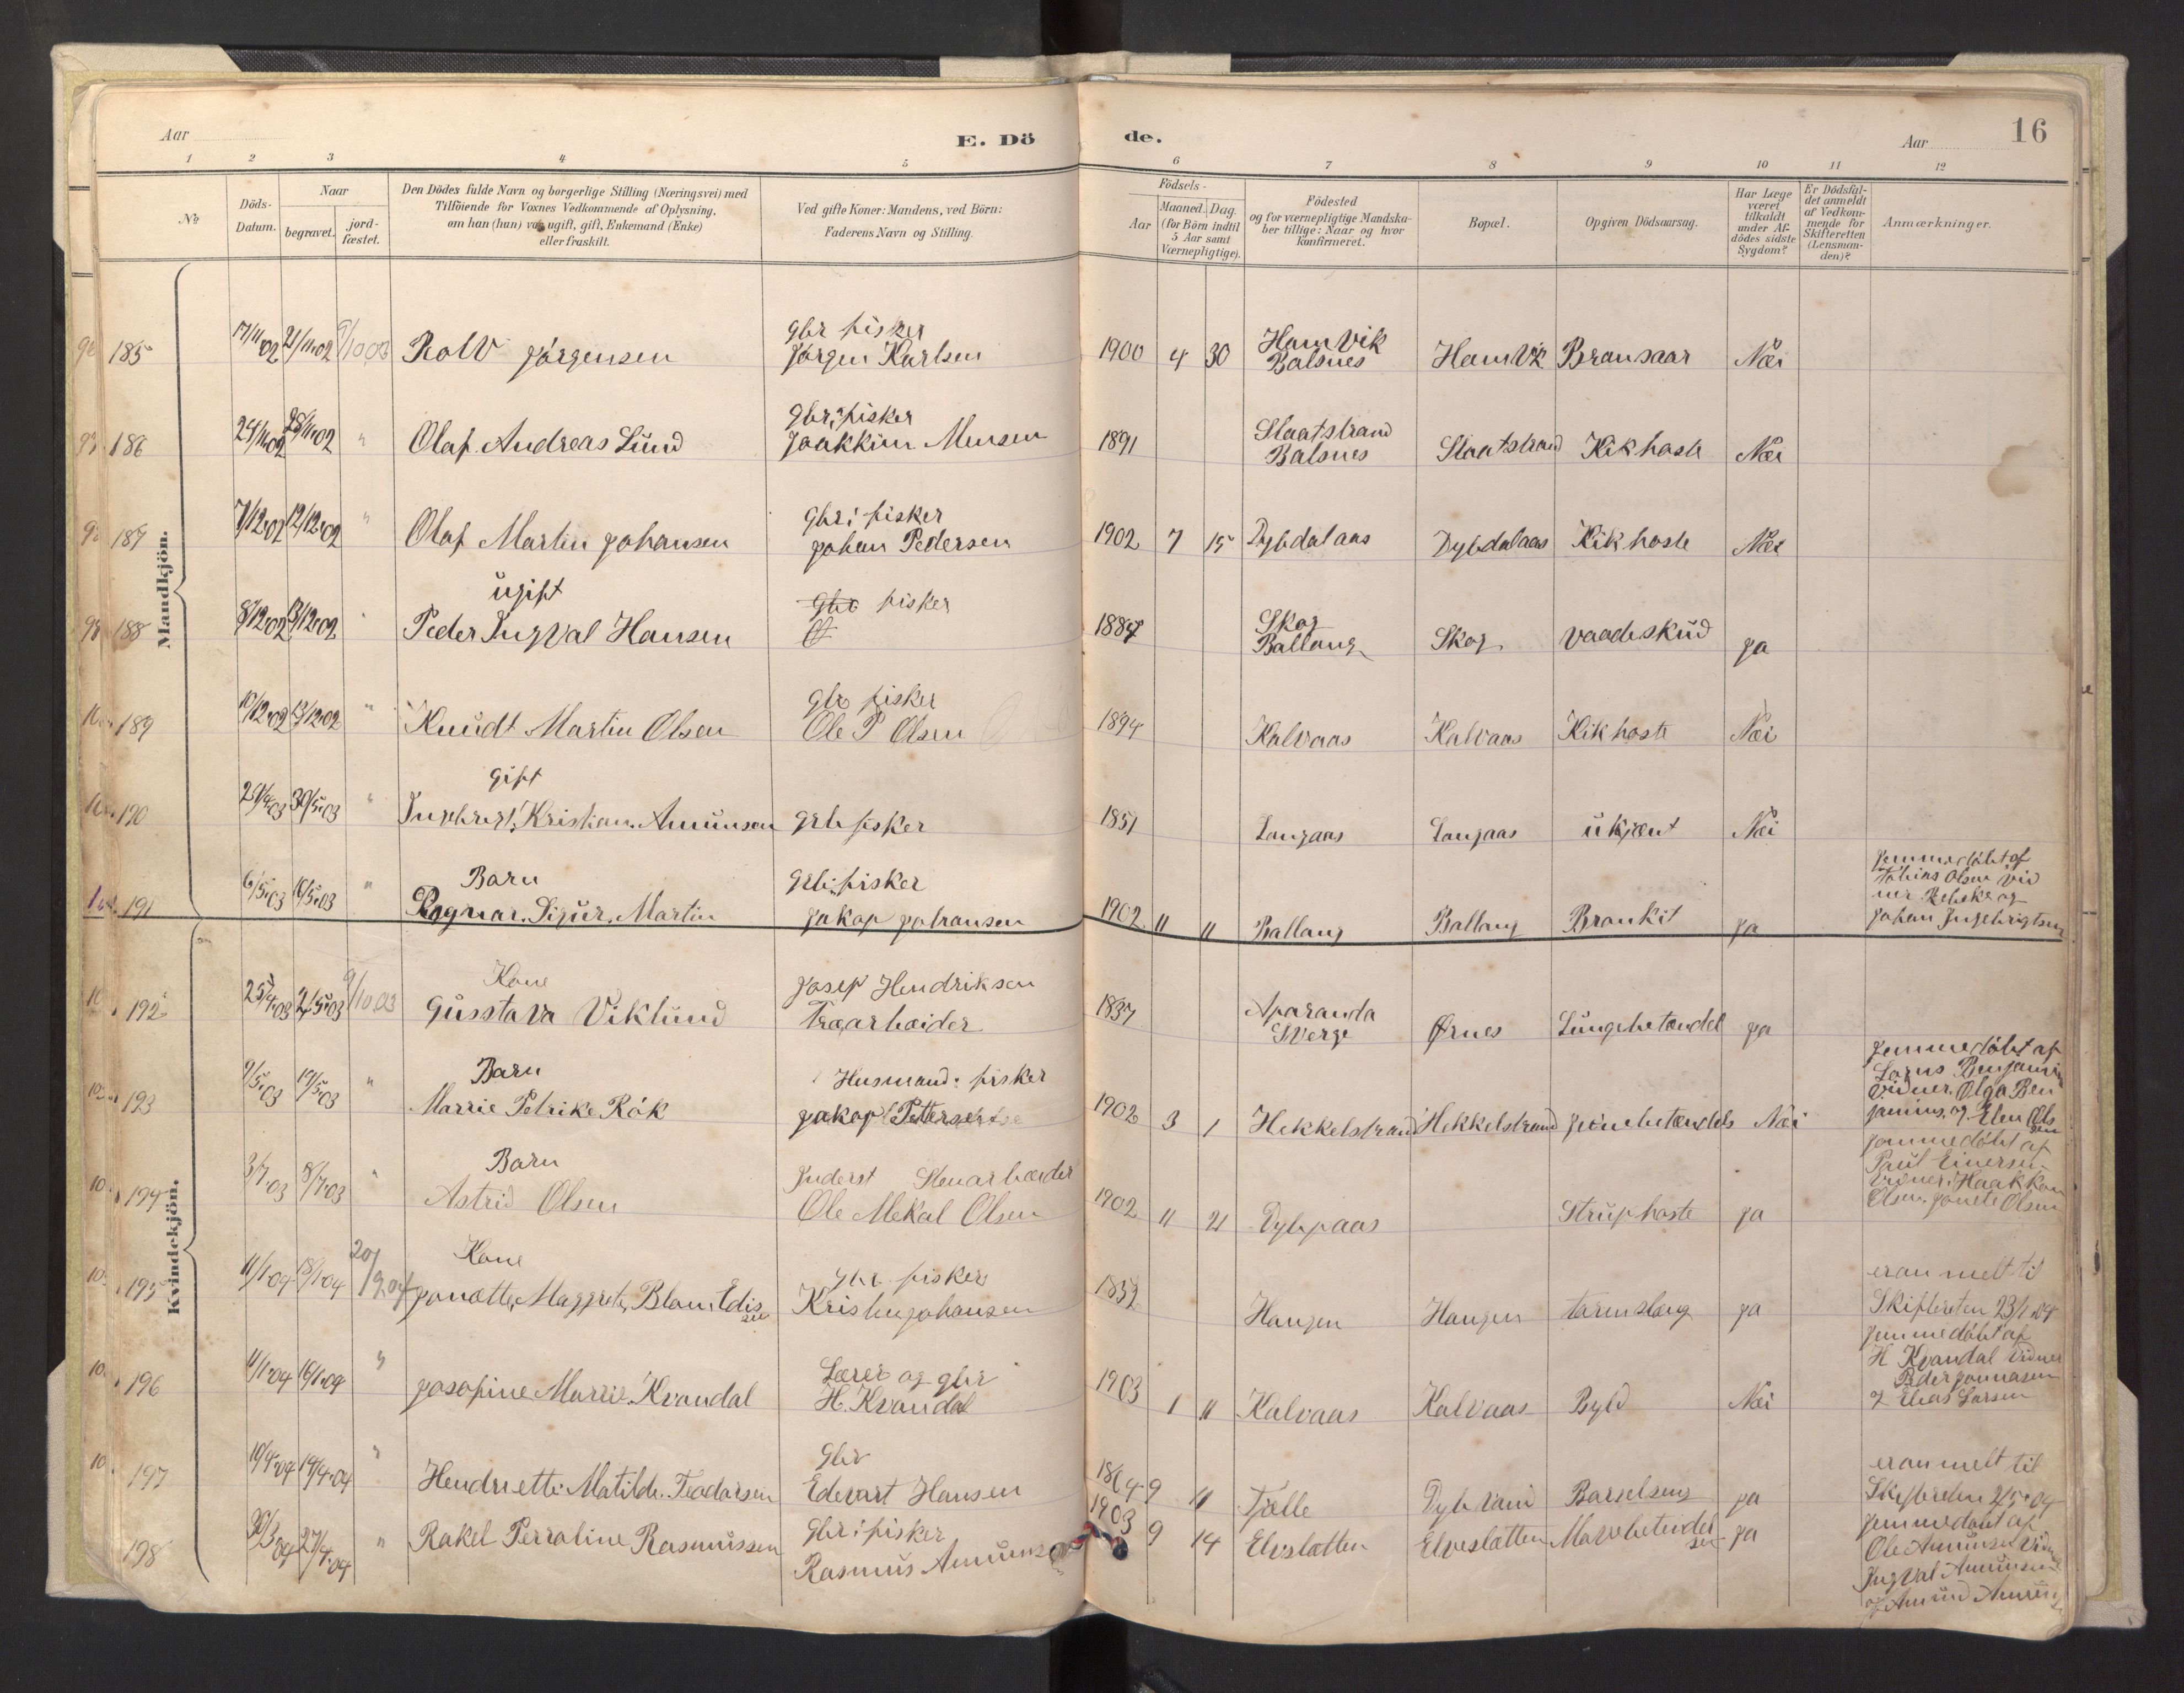 Aar
E. Dö
de.
Aar
16
1 2 3 4 5 6 7 8 9 10 11 12
No
Döds-Datum.
Naar
begravet.
jord-fæstet.
Den Dödes fulde Navn og borgerlige Stilling (Næringsvei) med
Tilföiende for Voxnes Vedkommende af Oplysning,
om han (hun) var ugift, gift, Enkemand (Enke)
eller fraskilt.
Ved gifte Koner: Mandens, ved Börn:
Faderens Navn og Stilling.
Födsels-
Aar
Maaned. Dag.
(for Börn indtil
5 Aar samt
Værnepligtige).
Födested
og for værnepligtige Mandska-
ber tillige: Naar og hvor
konfirmeret.
Bopæl.
Opgiven Dödsaarsag.
Har Læge
været
tilkaldt
under Af-
dödes sidste
Sygdom?
Er Dödsfal-
det anmeldt
af Vedkom-
mende for
Skifteretten
(Lensman-
den)?
Anmærkninger.
Mandkjön.
gbr fisker Ham Vik
185 17/11 02 21/11.02 9/10.03 Rolv Jörgensen Jörgen Karlsen 1900 4 30 Balsnes HamVik Bransaar Næi
Gbr. fisker Slaatstrand
186 24/11.02 28/11.02 " Olaf Andreas Lund Joakkim Mensen 1891 Balsnes Slaatstrand Kikhoste Næi
Gbr: fisker
187 7/12.02 12/12.02 " Olaf Martin Johansen Johan Pedersen 1902 7 15 Dybdalaas Dybdalaas Kikhoste Næi
ugift Gbr fisker Skog
188 8/12.02 13/12.02 " Peder Ingval Hansen 1884 Ballang Skog Vaadeskud ja
Gbr fisker
189 10/12.02 13/12.02 " Knudt Martin Olsen Ole P Olsen 1894 Kalvaas Kalvaas Kikhoste Næi
gift
190 29/4.03 30/5.03 " Ingebrigt Kristian Amunsen Grb fisker 1851 Langaas Langaas ukjænt Næi
Barn Grb. fisker
191 6/5.03 16/5.03 " Ragnar Sigur Martin Jakop Johansen 1902 11 11 Ballang Ballang Brankit ja
jemmedöbt af
Tobias Olsen vid
ner Rebeka og
Johan Ingebrigtsen
Kvindekjön.
Kone Josep Hendriksen Aparanda
192 25/4.03 2/5.03 9/10.03 Gusstava Viklund Træarbæider 1837 Sverge Ørnes Lungebetændel ja
Barn Husmand: fisker
193 9/5.03 19/5.03 " Marrie Petrike Rök Jakop Pettersen 1902 3 1 Hekkelstrand Hekkelstrand Jernebetændels Næi
jemmedöbt af
Lorns Benjamin
Vidner. Olga Ben
jamins. og Elen Ols
en
Barn Inderst Stenarbæider
194 3/7.03 8/7.03 " Astrid Olsen Ole Mekal Olsen 1902 11 21 Dybpaas Struphoste ja
jemmedöbt af
Paul Einersen
Vidner. Haakkon
Olsen. Janete Olsen
Kone Gbr. fisker
195 11/1.04 18/1.04 20/9.04 Janætte Maggrete Blom Edis
sen Kristen Johansen 1832 Haugen Haugen tarmslæng ja
eranmelt til
Skifteretten 23/1.04
Lærer og gbr
196 11/1.04 16/1.04 " Josofine Marrie Kvandal H. Kvandal 1903 1 11 Kalvaas Kalvaas Byld Næi
jemmedöbt af
H Kvandal Vidner
Peder Jonnasen
& Elias Larsen
Gbr
197 10/4.04 19/4.04 " Hendriette Matilde Teodorsen Edevart Hansen 1864 9 11 Fjelle Barselseng ja
eranmelt til
Skifteretten 2/5.04
Gbr: fisker
198 30/3.04 27/4.04 " Rakel Perroline Rasmussen Rasmus Amunsen 1903 9 14 Elveslætten Elveslætten Mavebetændel
sen ja
jemmedöbt af
Ole Amunsen Vidner
Ingval Amunsen
og Amund Amunsen